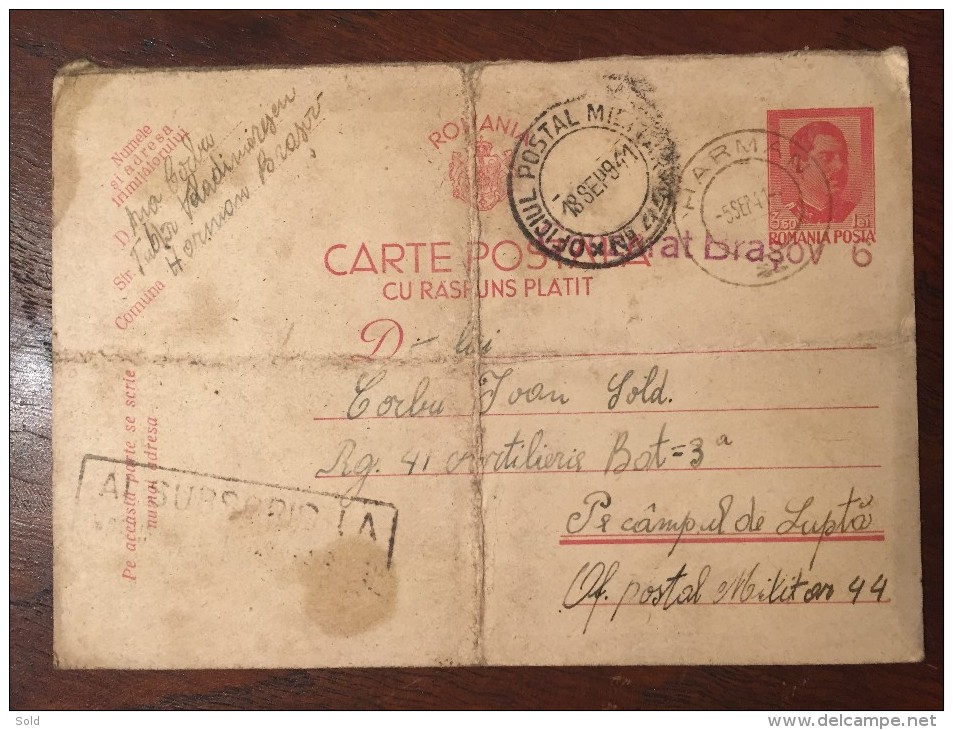 Numele
și adresa
trimițătorului
D.
Str.
Comuna Harman Brașov
ROMANIA
OFICIUL POSTAL MILITAR
18 SEP 941
HARMAN
-5 SEP 41
Lei
ROMANIA POSTA
CARTE POSTALA
CU RĂSPUNS PLATIT
Brașov 6
D-lui
Corbu Ioan Sold.
Rg. 41 Artilerie Bat=3ª
Pe câmpul de Luptă
Of. postal Militar 44
Pe această parte se scrie
numai adresa
AȚI SUBSCRIS LA
Sold
www.delcampe.net